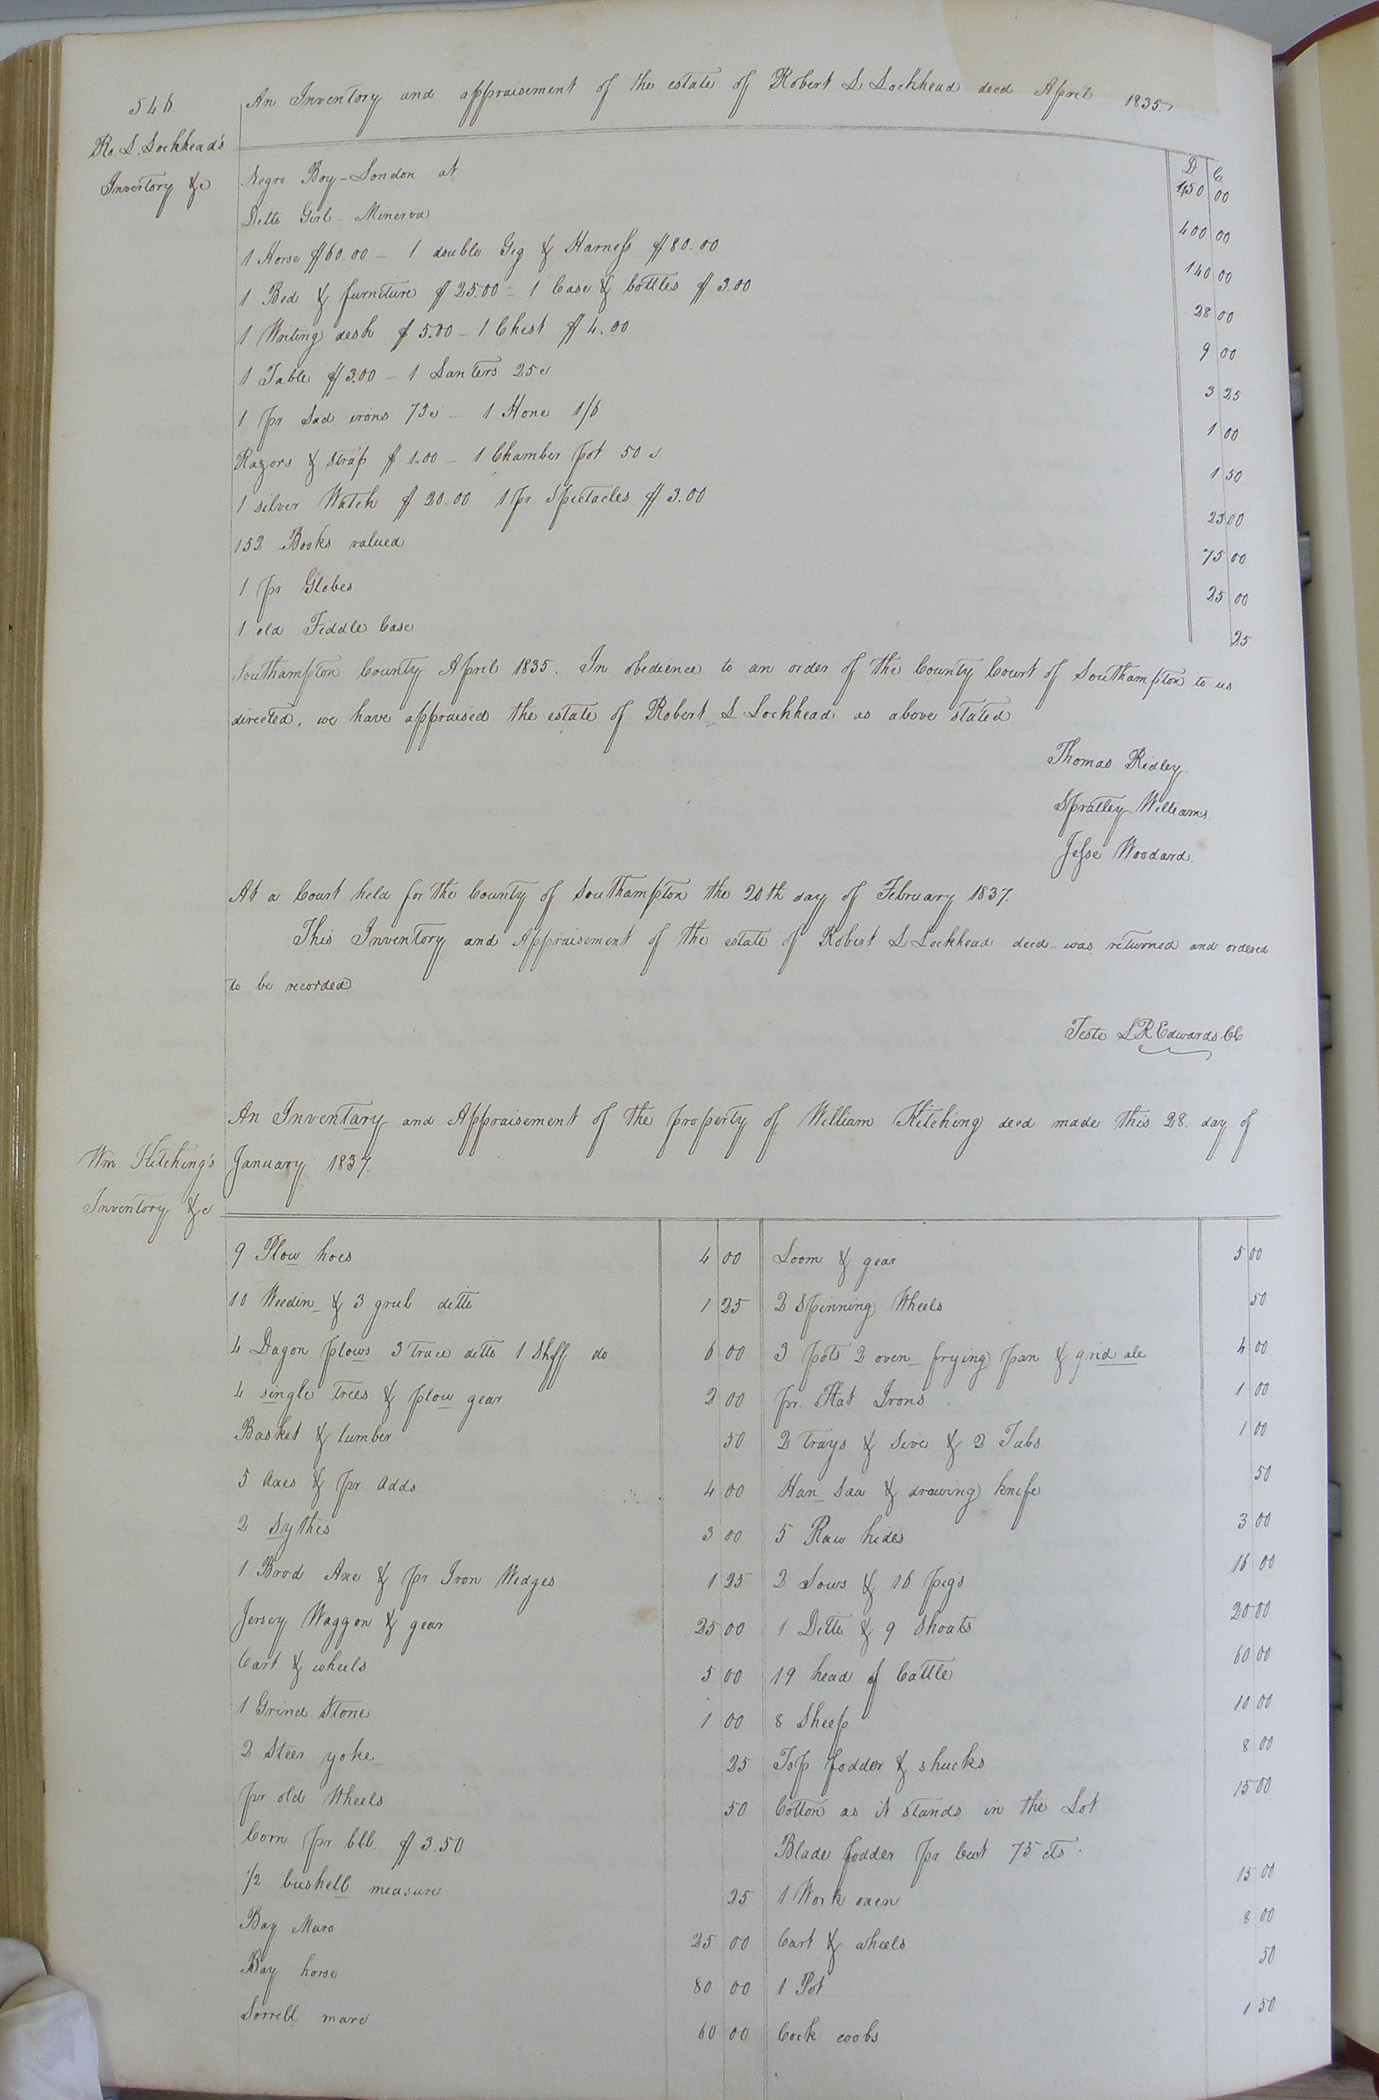 546
An Inventory and appraisement of the estate of Robert S Lockhead decd April 1835
Ro. S. Lockhead's
Inventory &c
D C
Negro Boy - London at 450 00
Ditto Girl - Minerva 400 00
1 Horse $60.00 - 1 double Gig & Harness $80.00 140 00
1 Bed & furniture $25.00 - 1 Case & bottles $3.00 28 00
1 Writing desk $5.00 - 1 Chest $4.00 9 00
1 Table $3.00 - 1 Lantern 25c 3 25
1 pr Sad irons 75c - 1 Hone 1/6 1 00
Razors & Strap $1.00 - 1 Chamber pot 50c 1 50
1 silver Watch $20.00 1 pr Spectacles $3.00 23 00
152 Books valued 75 00
1 pr Globes 25 00
1 old Fiddle Case 25
Southampton County April 1835. In obedience to an order of the County Court of Southampton to us
directed, we have appraised the estate of Robert S Lockhead as above stated.
Thomas Ridley.
Spratley Williams.
Jesse Woodard.
At a Court held for the County of Southampton the 20th day of February 1837.
This Inventory and Appraisement of the estate of Robert S Lockhead decd. was returned and ordered
to be recorded
Teste L R Edwards CC
An Inventary and Appraisement of the property of William Kitching decd made this 28. day of
Wm Kitching's
January 1837.
Inventory &c
9 Plow hoes 4 00 Loom & gear 5 00
10 Weedin_ & 3 grub ditto 1 25 2 Spinning Wheels 50
4 Dagon plows 3 trace ditto 1 Shff do 6 00 3 pots 2 oven_ frying pan & grid ale 4 00
4 single trees & plow gear 2 00 pr. Flat Irons 1 00
Basket & lumber 50 2 trays & Sive & 2 Tubs 1 00
5 Axes & pr Adds 4 00 Han_ Saw & drawing knife 50
2 Sythes 3 00 5 Raw hides 3 00
1 Brod Axe & pr Iron Wedges 1 25 2 Sows & 16 pigs 16 00
Jersey Waggon & gear 25 00 1 Ditto & 9 Shoats 20 00
Cart & wheels 5 00 19 head of Cattle 60 00
1 Grind Stone 1 00 8 Sheep 10 00
2 Steer yoke_ 25 Top fodder & shucks 8 00
pr old Wheels 50 Cotton as it stands in the Lot 15 00
Corn pr bll. $3.50 Blade fodder pr Cwt 75 cts.
1/2 bushell measure 25 1 Work oxen 15 00
Bay Mare 25 00 Cart & wheels 8 00
Bay horse 80 00 1 Pot 50
Sorrell mare 60 00 Cock coobs 1 50